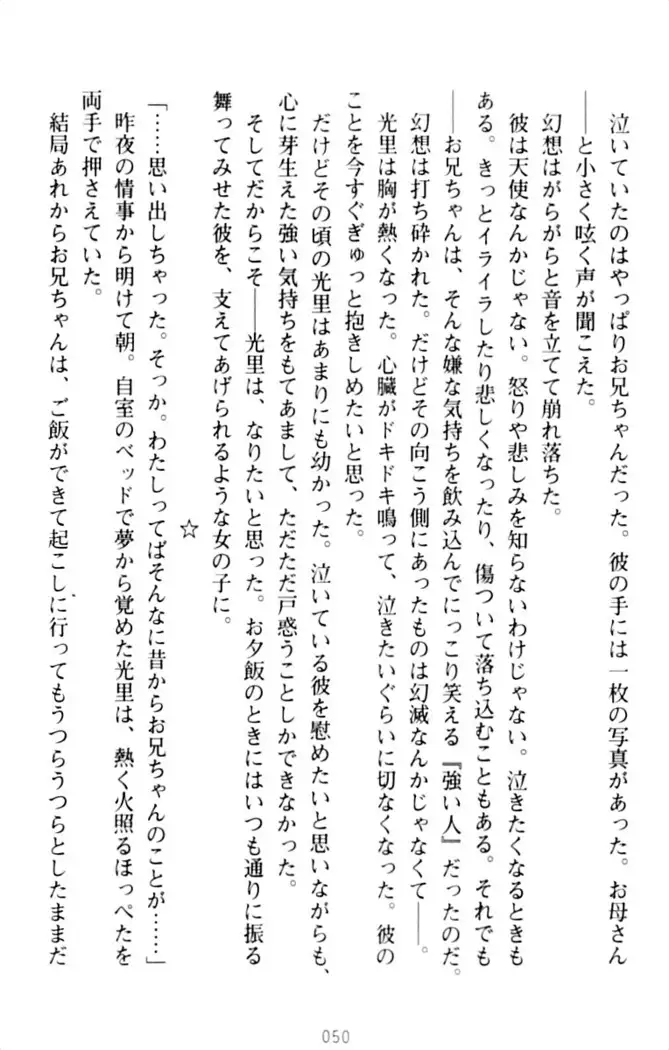 泣いていたのはやっぱりお兄ちゃんだった。彼の手には一枚の写真があった。お母さん
――と小さく呟く声が聞こえた。
幻想はがらがらと音を立てて崩れ落ちた。
彼は天使なんかじゃない。怒りや悲しみを知らないわけじゃない。泣きたくなるときも
ある。きっとイライラしたり悲しくなったり、傷ついて落ち込むこともある。それでも
――お兄ちゃんは、そんな嫌な気持ちを飲み込んでにっこり笑える『強い人』だったのだ。
幻想は打ち砕かれた。だけどその向こう側にあったものは幻滅なんかじゃなくて――。
光里は胸が熱くなった。心臓がドキドキ鳴って、泣きたいぐらいに切なくなった。彼の
ことを今すぐぎゅっと抱きしめたいと思った。
だけどその頃の光里はあまりにも幼かった。泣いている彼を慰めたいと思いながらも、
心に芽生えた強い気持ちをもてあまして、ただただ戸惑うことしかできなかった。
そしてだからこそ――光里は、なりたいと思った。お夕飯のときにはいつも通りに振る
舞ってみせた彼を、支えてあげられるような女の子に。
☆
「……思い出しちゃった。そっか。わたしってばそんなに昔からお兄ちゃんのことが……」
昨夜の情事から明けて朝。自室のベッドで夢から覚めた光里は、熱く火照るほっぺたを
両手で押さえていた。
結局あれからお兄ちゃんは、ご飯ができて起こしに行ってもうつらうつらとしたままだ
050